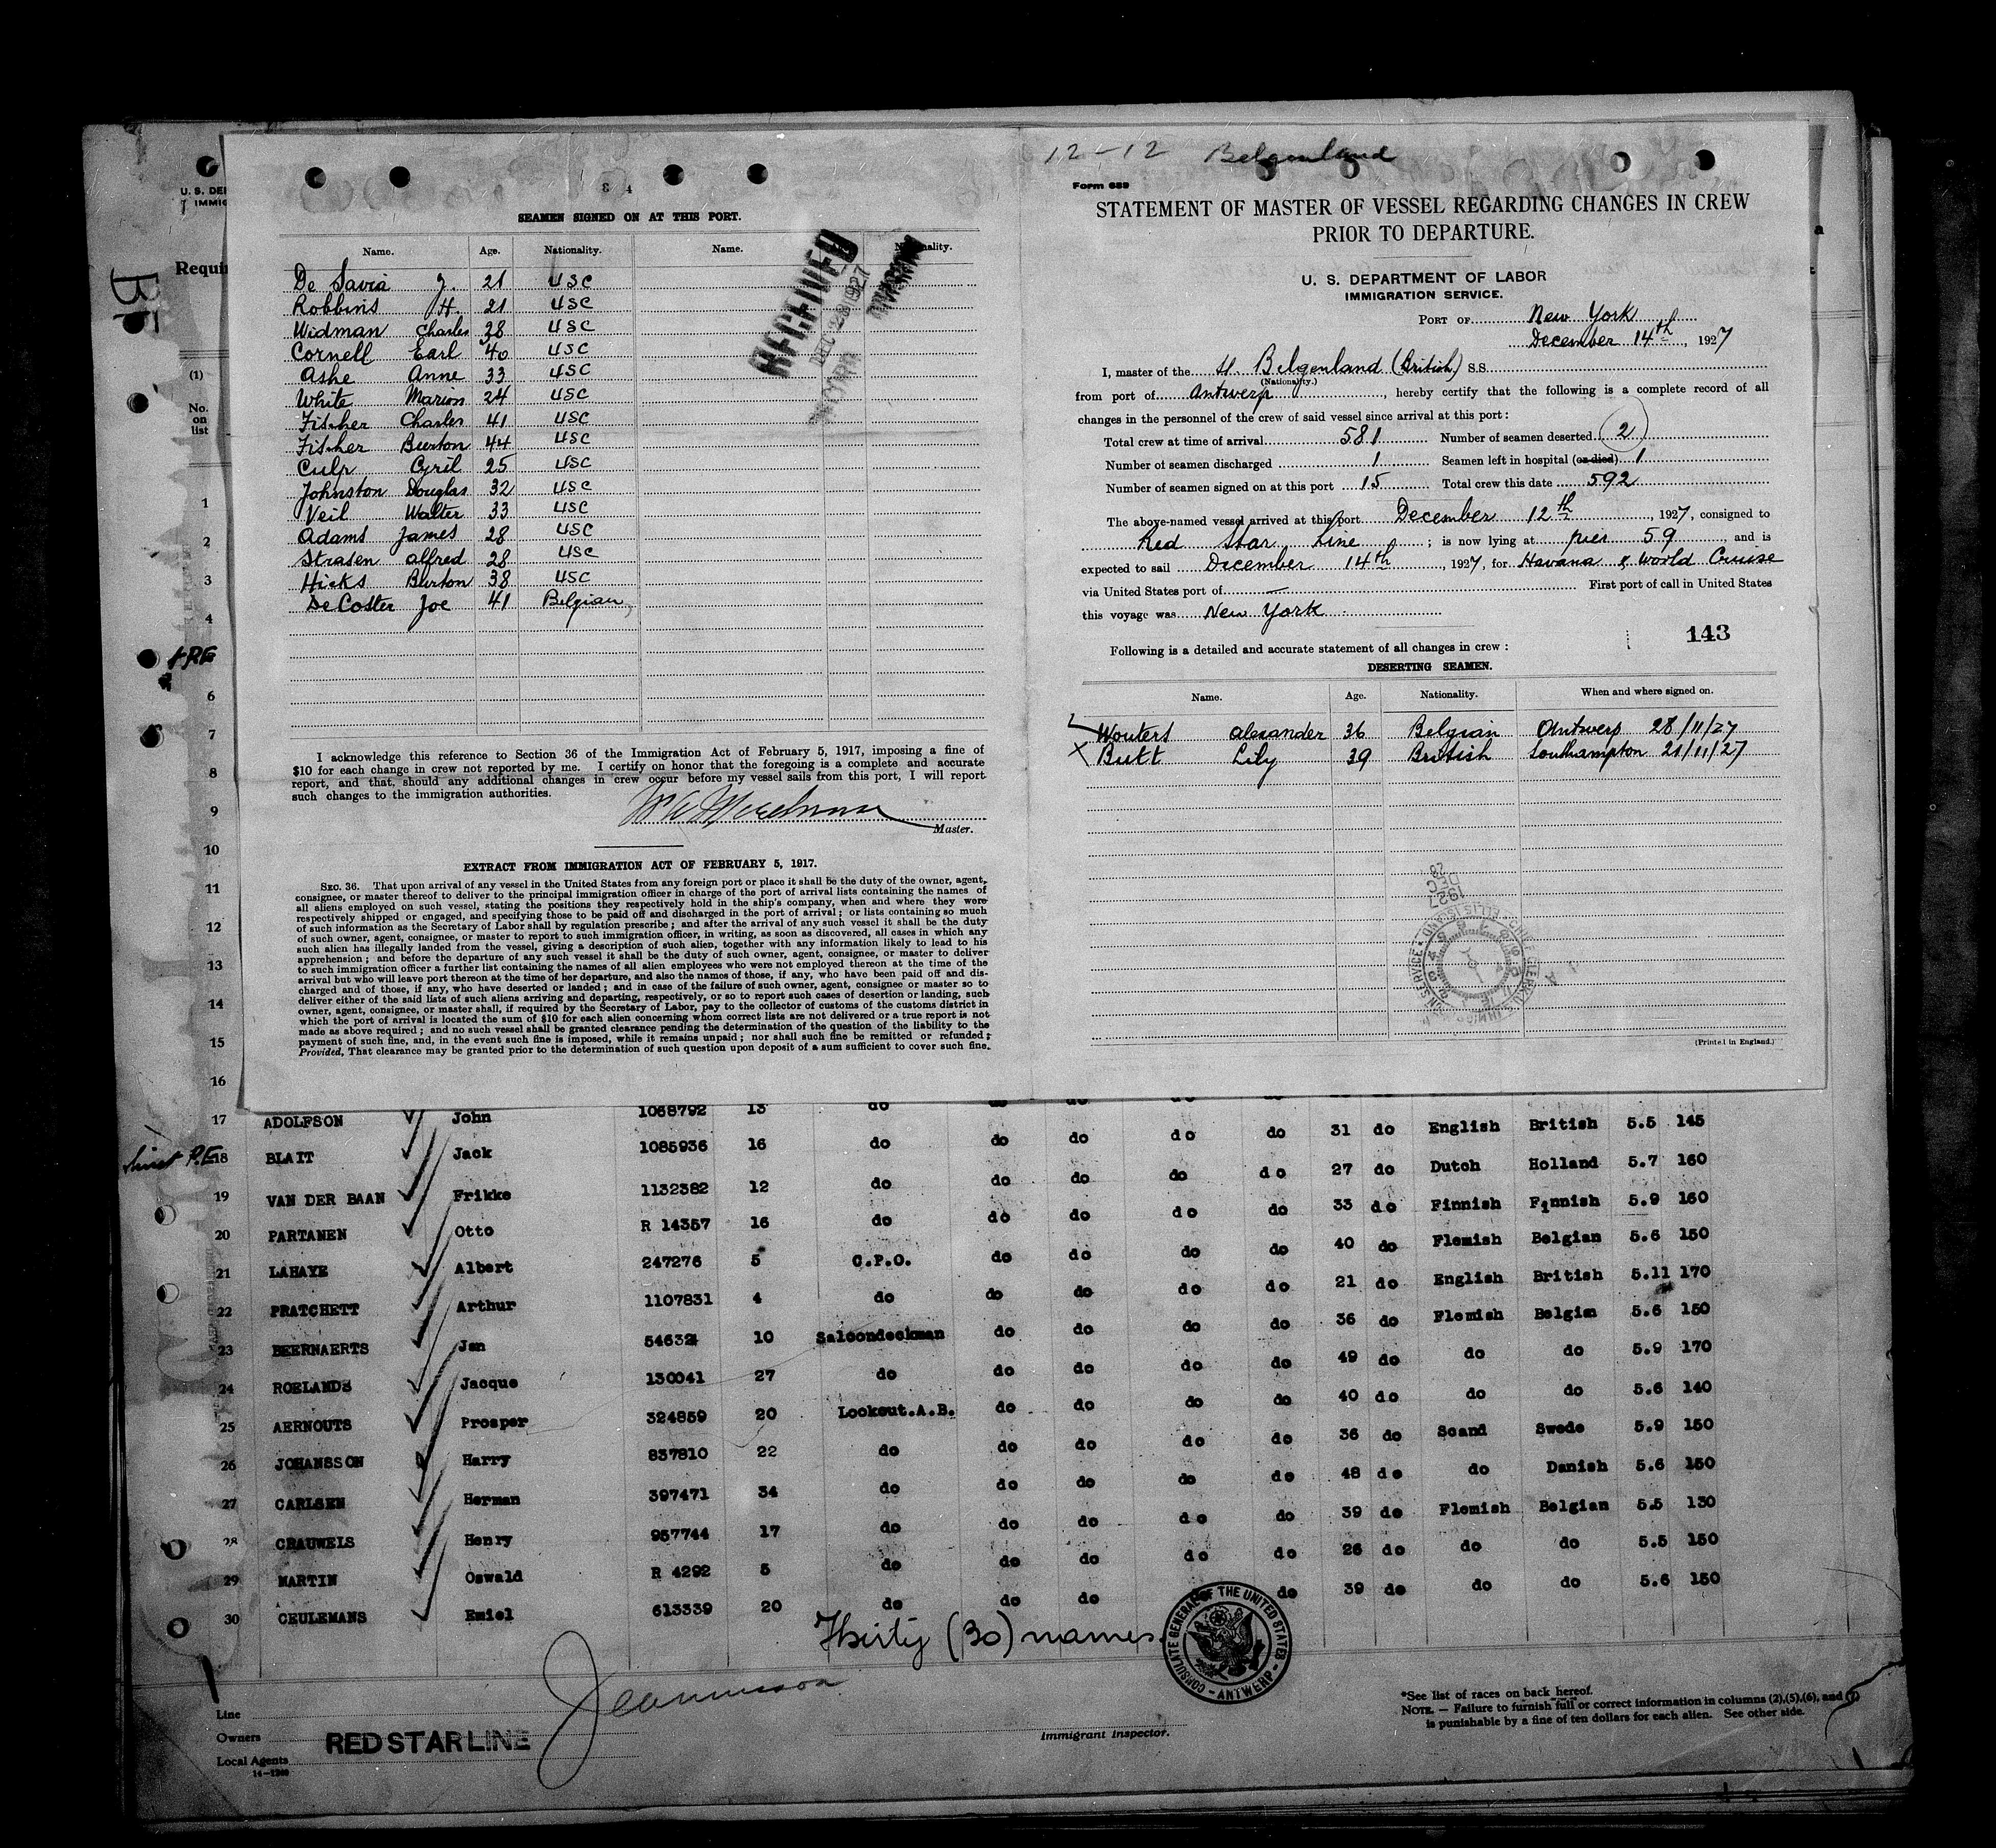 12-12 Belgenland
SEAMEN SIGNED ON AT THIS PORT.
Name. Age. Nationality. Name. Nationality.
De Savia J. 21 USC
Robbins H. 21 USC
Widman Charles 28 USC
Cornell Earl 40 USC
Ashe Anne 33 USC
White Marion 24 USC
Fisher Charles 41 USC
Fisher Burton 44 USC
Culp Cyril 25 USC
Johnston Douglas 32 USC
Veil Walter 33 USC
Adams James 28 USC
Strasen Alfred 28 USC
Hicks Burton 38 USC
De Coster Joe 41 Belgian
RECEIVED
DEC 28 1927
DIVISION
I acknowledge this reference to Section 36 of the Immigration Act of February 5, 1917, imposing a fine of
$10 for each change in crew not reported by me. I certify on honor that the foregoing is a complete and accurate
report, and that, should any additional changes in crew occur before my vessel sails from this port, I will report
such changes to the immigration authorities.
Master.
EXTRACT FROM IMMIGRATION ACT OF FEBRUARY 5, 1917.
SEC. 36. That upon arrival of any vessel in the United States from any foreign port or place it shall be the duty of the owner, agent,
consignee, or master thereof to deliver to the principal immigration officer in charge of the port of arrival lists containing the names of
all aliens employed on such vessel, stating the positions they respectively hold in the ship's company, when and where they were
respectively shipped or engaged, and specifying those to be paid off and discharged in the port of arrival; or lists containing so much
of such information as the Secretary of Labor shall by regulation prescribe; and after the arrival of any such vessel it shall be the duty
of such owner, agent, consignee, or master to report to such immigration officer, in writing, as soon as discovered, all cases in which any
such alien has illegally landed from the vessel, giving a description of such alien, together with any information likely to lead to his
apprehension; and before the departure of any such vessel it shall be the duty of such owner, agent, consignee, or master to deliver
to such immigration officer a further list containing the names of all alien employees who were not employed thereon at the time of the
arrival but who will leave port thereon at the time of her departure, and also the names of those, if any, who have been paid off and dis-
charged and of those, if any, who have deserted or landed; and in case of the failure of such owner, agent, consignee or master so to
deliver either of the said lists of such aliens arriving and departing, respectively, or so to report such cases of desertion or landing, such
owner, agent, consignee, or master shall, if required by the Secretary of Labor, pay to the collector of customs of the customs district in
which the port of arrival is located the sum of $10 for each alien concerning whom correct lists are not delivered or a true report is not
made as above required; and no such vessel shall be granted clearance pending the determination of the question of the liability to the
payment of such fine, and, in the event such fine is imposed, while it remains unpaid; nor shall such fine be remitted or refunded:
Provided, That clearance may be granted prior to the determination of such question upon deposit of a sum sufficient to cover such fine.
Form 689
STATEMENT OF MASTER OF VESSEL REGARDING CHANGES IN CREW
PRIOR TO DEPARTURE.
U. S. DEPARTMENT OF LABOR
IMMIGRATION SERVICE.
PORT OF New York
December 14th, 1927
I, master of the Belgenland (British) S.S.
(Nationality.)
from port of Antwerp, hereby certify that the following is a complete record of all
changes in the personnel of the crew of said vessel since arrival at this port:
Total crew at time of arrival 581 Number of seamen deserted 2
Number of seamen discharged 1 Seamen left in hospital (or died) 1
Number of seamen signed on at this port 15 Total crew this date 592
The above-named vessel arrived at this port December 12th, 1927, consigned to
Red Star Line; is now lying at pier 59, and is
expected to sail December 14th, 1927, for Havana & World Cruise
via United States port of — First port of call in United States
this voyage was New York
143
Following is a detailed and accurate statement of all changes in crew:
DESERTING SEAMEN.
Name. Age. Nationality. When and where signed on.
Wouters Alexander 36 Belgian Antwerp 28/11/27
X Butt Lily 39 British Southampton 21/11/27
1927 DEC 28
(Printed in England.)
U. S. DE
IMMIG
BF
Requi
(1)
No. on list
1
2
3
4
6
7
8
9
10
11
12
13
14
15
16
17 ADOLFSON John 1068792 13 do do do do
18 BLAIT Jack 1085936 16 do do do do do 31 do English British 5.5 145
19 VAN DER BAAN Frikke 1132382 12 do do do do do 27 do Dutch Holland 5.7 160
20 PARTANEN Otto R 14357 16 do do do do do 33 do Finnish Finnish 5.9 160
21 LAHAYE Albert 247276 5 C.P.O. do do do do 40 do Flemish Belgian 5.6 150
22 PRATCHETT Arthur 1107831 4 do do do do do 21 do English British 5.11 170
23 BEERNAERTS Jan 54632 10 Saloondeckman do do do do 36 do Flemish Belgian 5.6 150
24 ROELANDS Jacque 130041 27 do do do do do 49 do do do 5.9 170
25 AERNOUTS Prosper 324859 20 Lookout.A.B. do do do do 40 do do do 5.6 140
26 JOHANSSON Harry 837810 22 do do do do do 36 do Scand Swede 5.9 150
27 CARLSEN Herman 397471 34 do do do do do 48 do do Danish 5.6 150
28 CRAUWELS Henry 957744 17 do do do do do 39 do Flemish Belgian 5.5 130
29 MARTIN Oswald R 4292 5 do do do do do 26 do do do 5.5 150
30 CEULEMANS Emiel 613339 20 do do do do 39 do do do 5.6 150
Thirty (30) names
CONSULATE GENERAL OF THE UNITED STATES - ANTWERP -
Line
Owners
Local Agents
RED STAR LINE
Immigrant Inspector.
*See list of races on back hereof.
NOTE. — Failure to furnish full or correct information in columns (2),(5),(6), and (7)
is punishable by a fine of ten dollars for each alien. See other side.